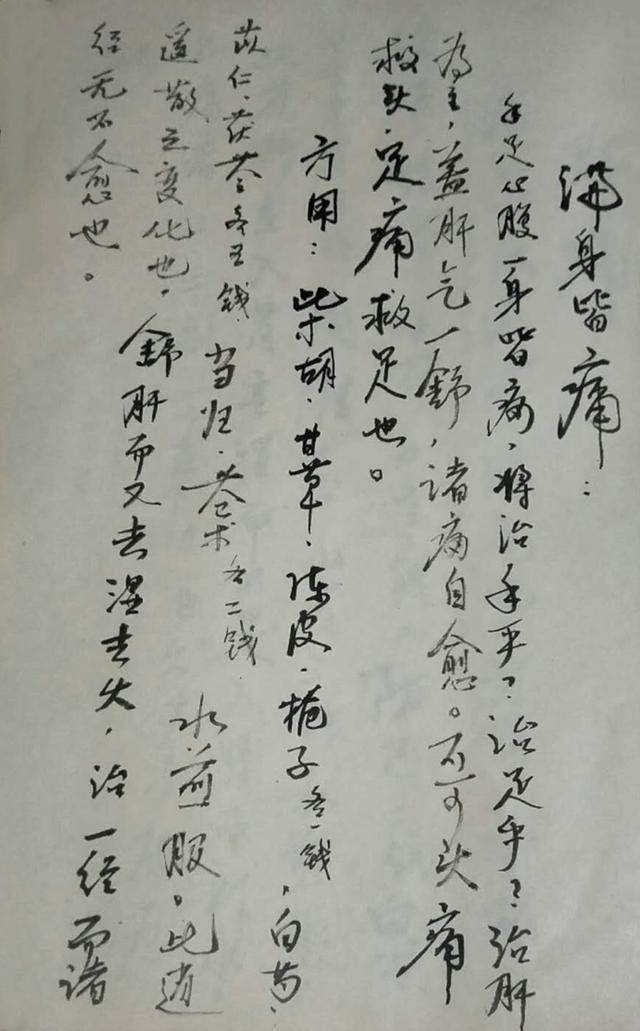 满身皆痛:
手足心腹一身皆痛,将治手乎?治足乎?治肝
为主,盖肝气一舒,诸痛自愈。不可头痛
救头,足痛救足也。
方用:柴胡、甘草、陈皮、栀子各一钱,白芍、
苡仁、茯苓各五钱,当归、苍术各二钱
水煎服。此逍
遥散之变化也,舒肝而又去湿去火,治一经而诸
经无不愈也。